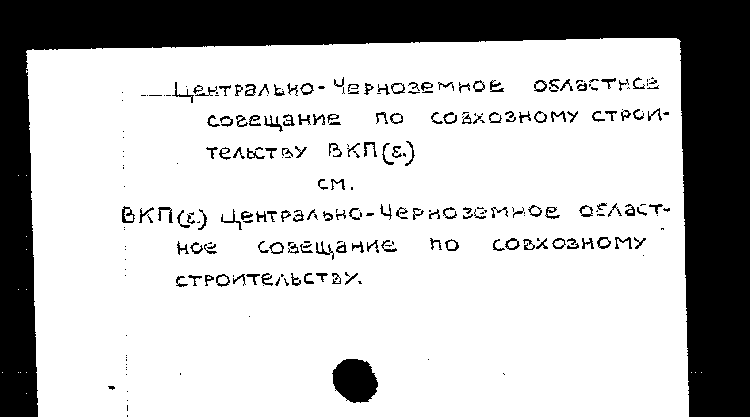 Центрально-Черноземное областное
совещание по совхозному строи-
тельству ВКП(б.)
см.
ВКП(б.) Центрально-Черноземное област-
ное совещание по совхозному
строительству.